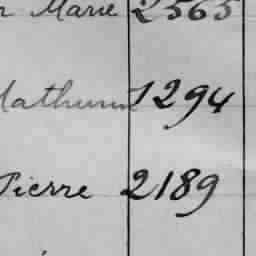 Marie 2565
Mathurin 1294
Pierre 2189